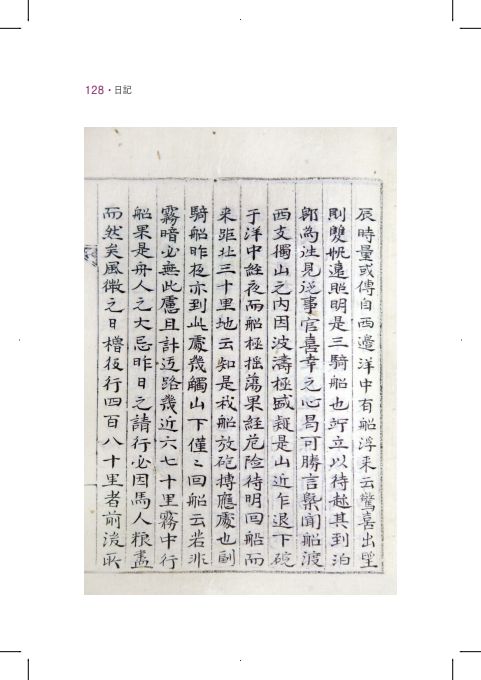 128 · 日記
辰時量或傳自西邊洋中有船浮来云驚喜出望
則雙帆遠照明是三騎船也竚立以待趂其到泊
卽為往見從事官喜幸之心曷可勝言槩聞船渡
西支獨山之内因波濤極盛疑是山近乍退下碇
于洋中經夜而船極揺蕩果經危险待明回船而
来距此三十里地云知是我船放砲搏應處也副
騎船昨夜亦到此處幾觸山下僅〻回船云若非
霧暗必無此慮且計迃路幾近六七十里霧中行
船果是舟人之大忌昨日之請行必因馬人粮盡
而然矣風微之日櫓役行四百八十里者前後所